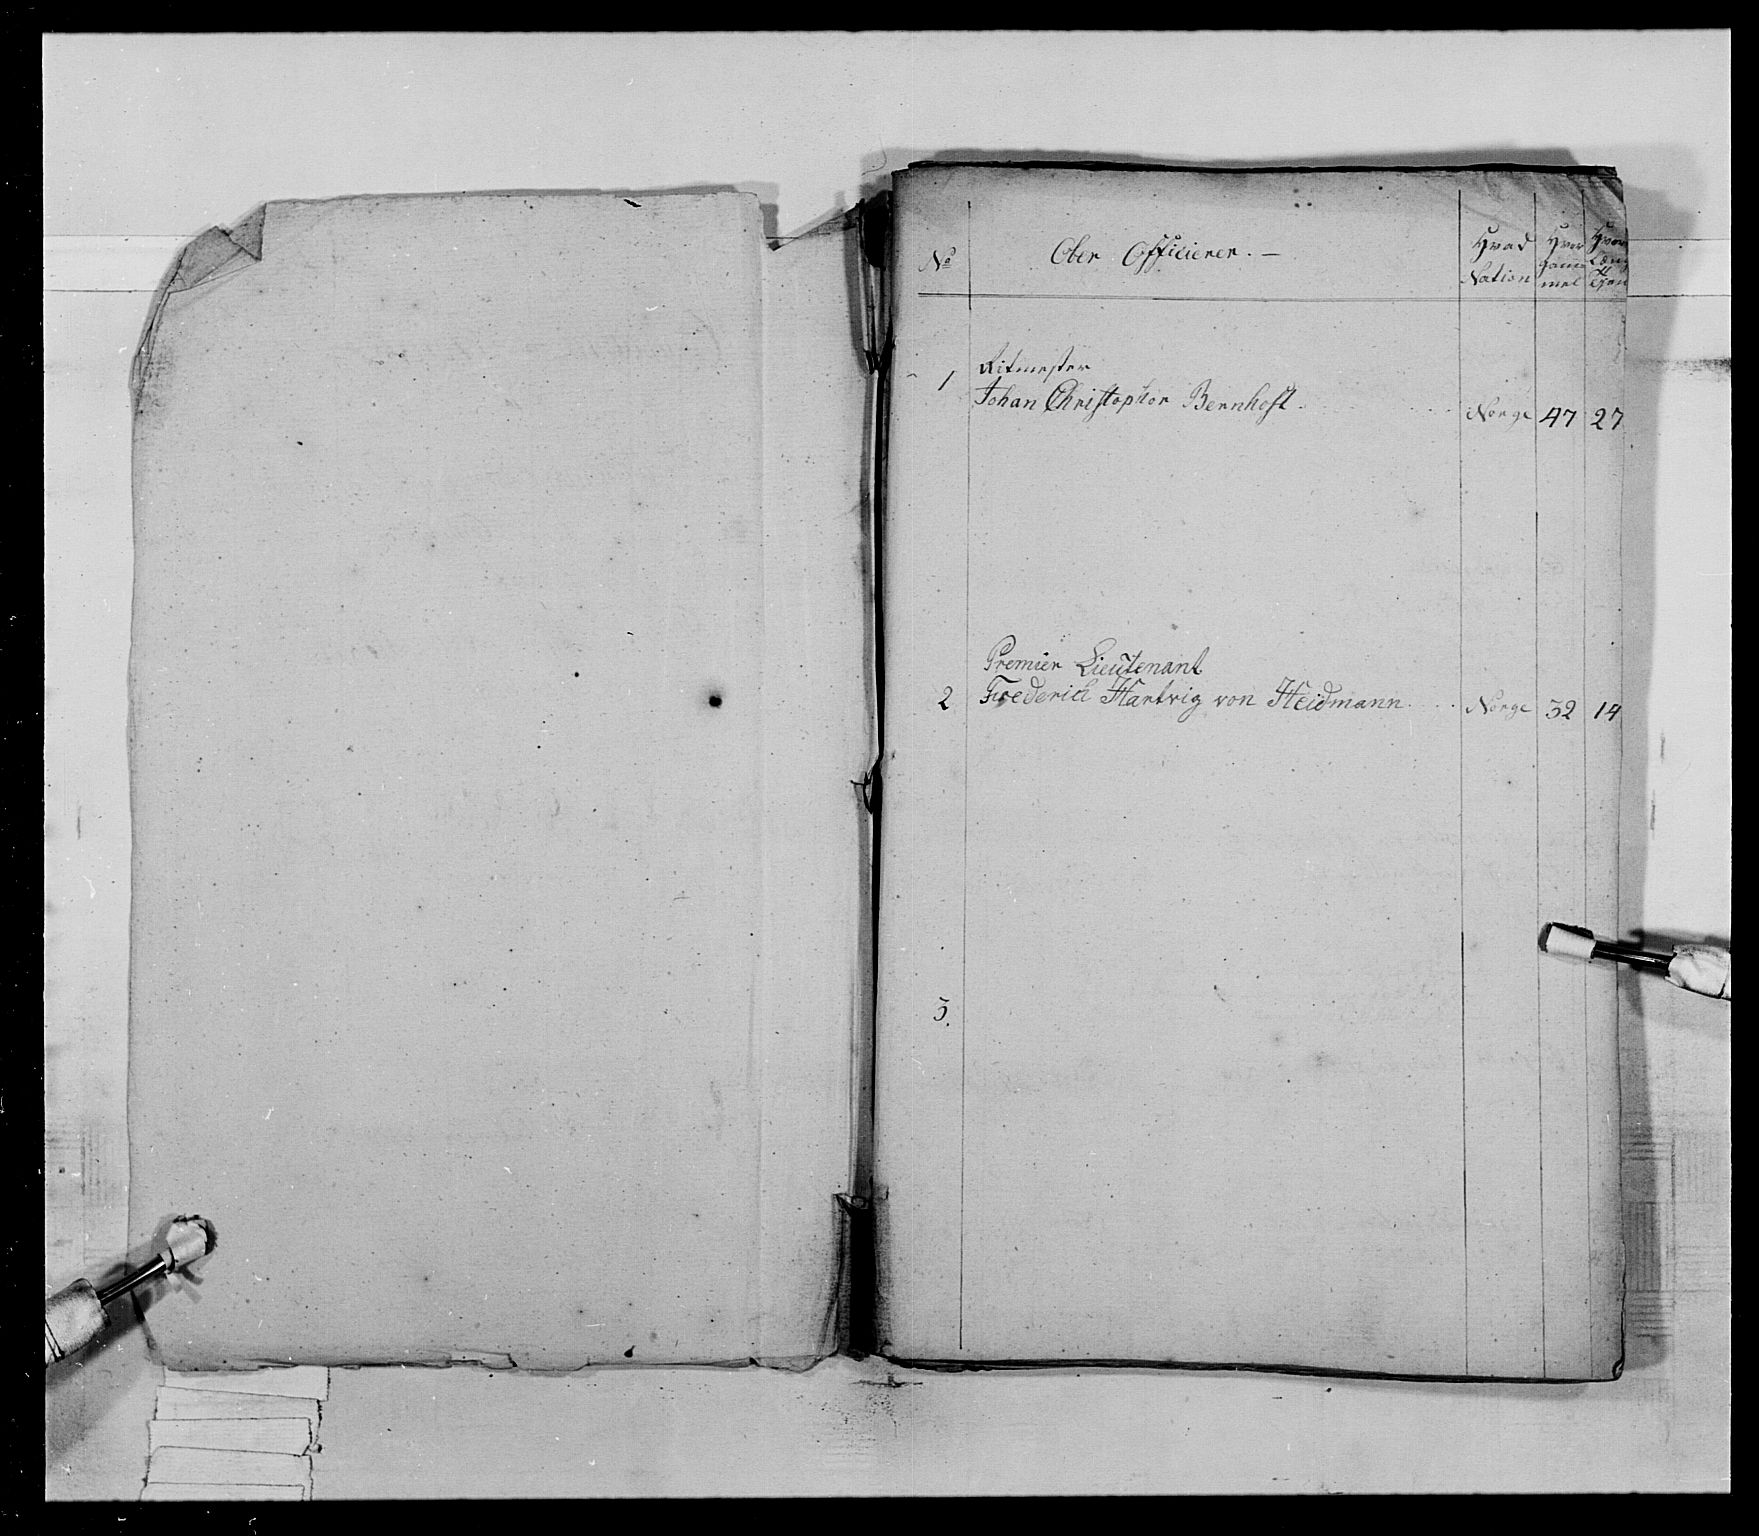 No Ober Officierer. — Hvad Nation Hvor gam̅mel Hvor Læng Tjent
Ritmester
1 Johan Christophor Bernhoft. Norge 47 27
Premier Lieutenant
2 Frederich Hartvig von Heidmann. Norge 32 14
3.